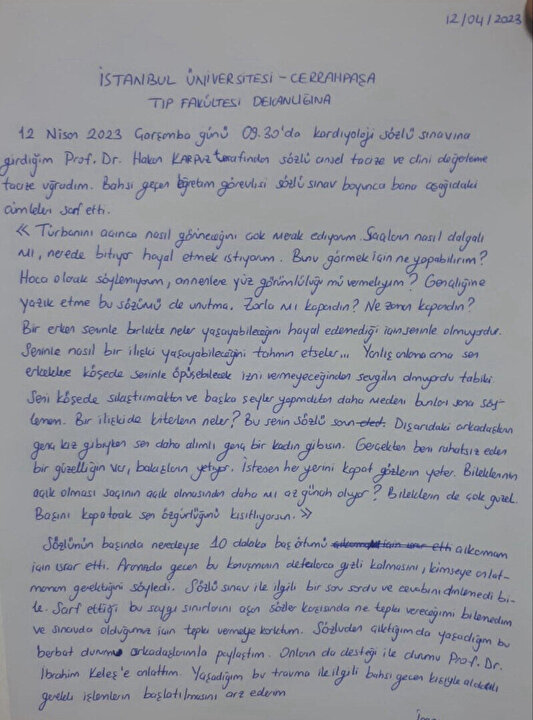 12/04/2023
İSTANBUL ÜNİVERSİTESİ - CERRAHPAŞA
TIP FAKÜLTESİ DEKANLIĞINA
12 Nisan 2023 Çarşamba günü 09.30'da kardiyoloji sözlü sınavına
girdiğim Prof. Dr. Hakan KARPUZ tarafından sözlü cinsel tacize ve dini değerlerime
tacize uğradım. Bahsi geçen öğretim görevlisi sözlü sınav boyunca bana aşağıdaki
cümleleri sarf etti.
« Türbanını açınca nasıl görüneceğini çok merak ediyorum. Saçların nasıl dalgalı
mı, nerede bitiyor hayal etmek istiyorum. Bunu görmek için ne yapabilirim?
Hoca olarak söylemiyorum, annenlere yüz görümlülüğü mü vermeliyim? Gençliğine
yazık etme bu sözümü de unutma. Zorla mı kapandın? Ne zaman kapandın?
Bir erkek seninle birlikte neler yaşayabileceğini hayal edemediği için seninle olmuyordur.
Seninle nasıl bir ilişki yaşayabileceğini tahmin etseler... Yanlış anlama ama sen
erkeklere köşede seninle öpüşebilecek izni vermeyeceğinden sevgilin olmuyordu tabiki.
Seni köşede sıkıştırmaktan ve başka şeyler yapmaktan daha medeni bunları sana söy-
lemem. Bir ilişkide kriterlerin neler? Bu senin sözlü sorun oted. Dışarıdaki arkadaşların
genç kız gibiyken sen daha alımlı genç bir kadın gibisin. Gerçekten beni rahatsız eden
bir güzelliğin var, bakışların yetiyor. İstesen her yerini kapat gözlerin yeter. Bileklerinin
açık olması saçının açık olmasından daha mı az günah oluyor? Bileklerin de çok güzel.
Başını kapatarak sen özgürlüğünü kısıtlıyorsun. »
Sözlünün başında neredeyse 10 dakika baş örtümü çıkarmam
için ısrar etti. Aramızda geçen bu konuşmanın defalarca gizli kalmasını, kimseye anlat-
mamam gerektiğini söyledi. Sözlü sınav ile ilgili bir soru sordu ve cevabını dinlemedi bi-
le. Sarf ettiği bu saygı sınırlarını aşan sözler karşısında ne tepki vereceğimi bilemedim
ve sınavda olduğumuz için tepki vermeye korktum. Sözlüden çıktığımda yaşadığım bu
berbat durumu arkadaşlarımla paylaştım. Onların da desteği ile durumu Prof. Dr.
İbrahim Keleş'e anlattım. Yaşadığım bu travma ile ilgili bahsi geçen kişiyle alakalı
gerekli işlemlerin başlatılmasını arz ederim